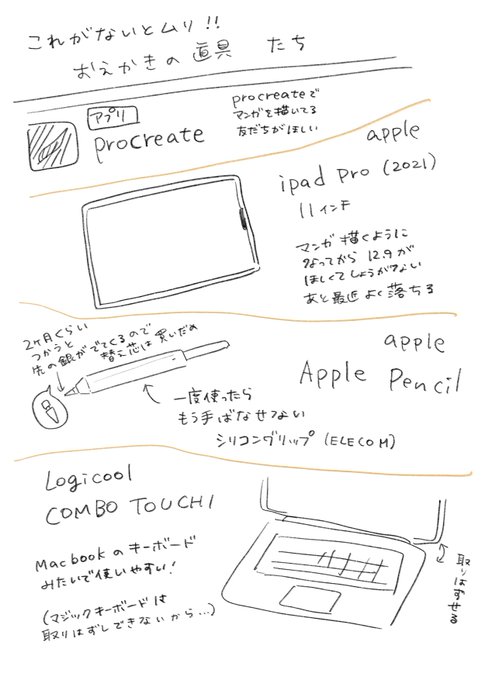 これがないとムリ!!
おえかきの道具たち
アプリ
procreate
procreateで
マンガを描いてる
友だちがほしい
apple
ipad pro (2021)
11インチ
マンガ描くように
なってから 12.9が
ほしくてしょうがない
あと最近よく落ちる
apple
Apple Pencil
2ヶ月くらい
つかうと
先の銀がでてくるので
替え芯は買いだめ
一度使ったら
もう手ばなせない
シリコングリップ (ELECOM)
Logicool
COMBO TOUCH!
Macbookのキーボード
みたいで使いやすい!
(マジックキーボードは
取りはずしできないから…)
取りはずせる